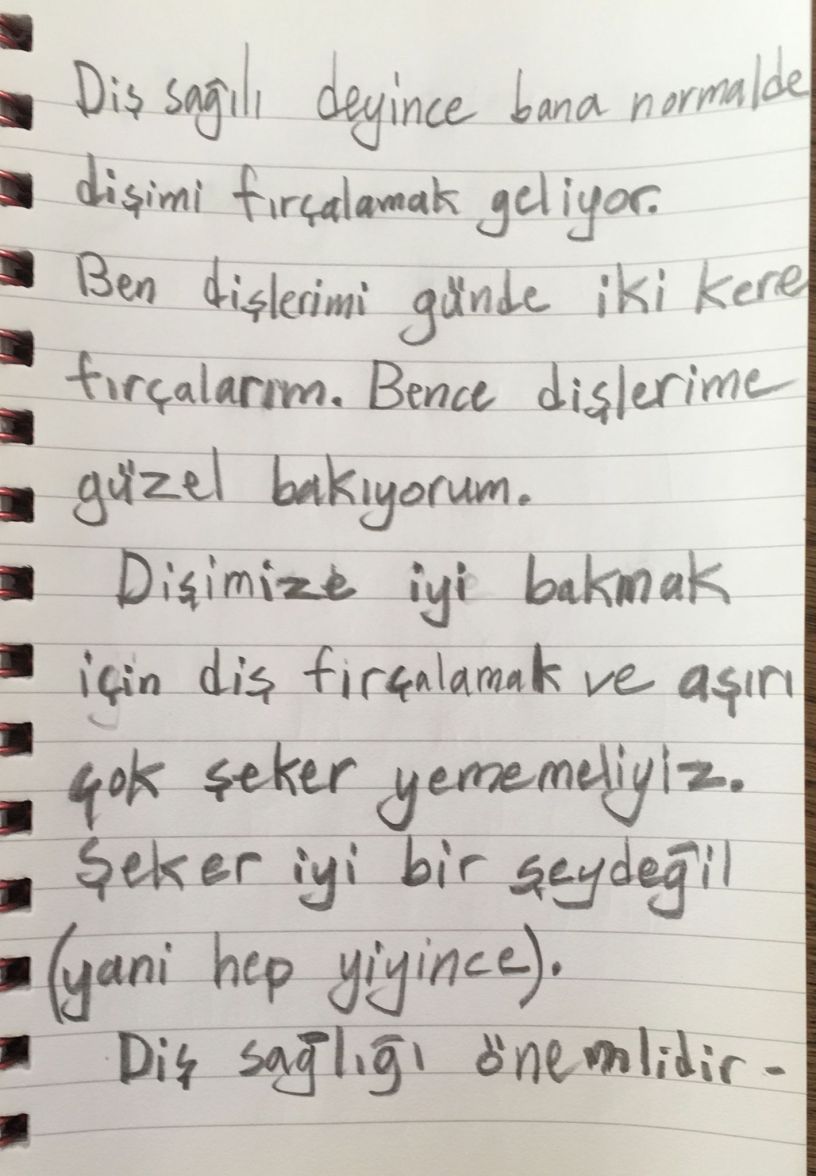 Diş sağılı deyince bana normalde
dişimi fırçalamak geliyor.
Ben dişlerimi günde iki kere
fırçalarım. Bence dişlerime
güzel bakıyorum.
Dişimize iyi bakmak
için diş firçalamak ve aşırı
çok şeker yememeliyiz.
Şeker iyi bir şeydeğil
(yani hep yiyince).
Diş sağlığı önemlidir-